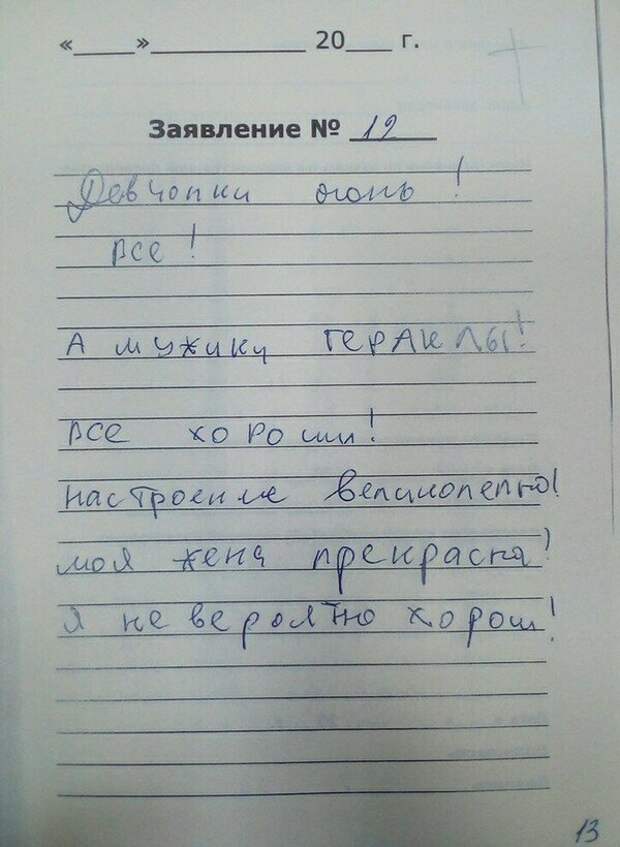 «____»____________ 20___ г.
Заявление № 12
Девчонки огонь!
все!
А мужики ГЕРАКЛЫ!
все хороши!
настроение великолепно!
моя жена прекрасна!
я не вероятно хорош!
13